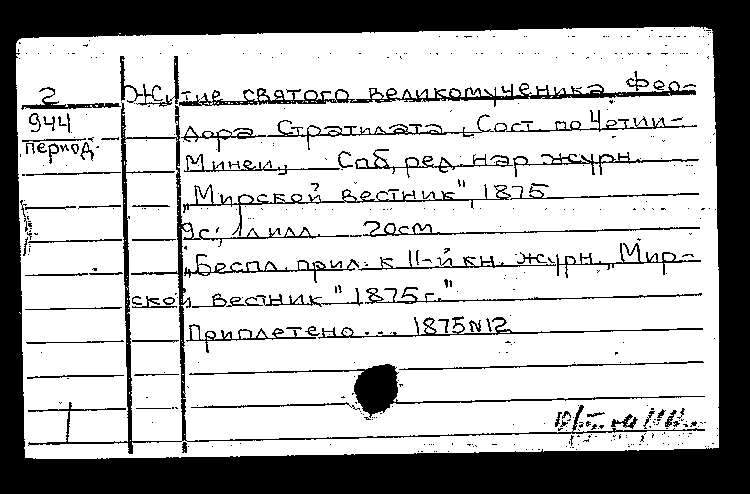 2 Житие святого великомученика Фео-
944 дора Стратилата „Сост. по Четии-
период. Минеи„ Спб, ред. нар журн.
„Мирской вестник", 1875
9с; 1л илл. 20см.
„Беспл. прил. к 11-й кн. журн. „Мир-
ской вестник" 1875г."
Приплетено... 1875 N12